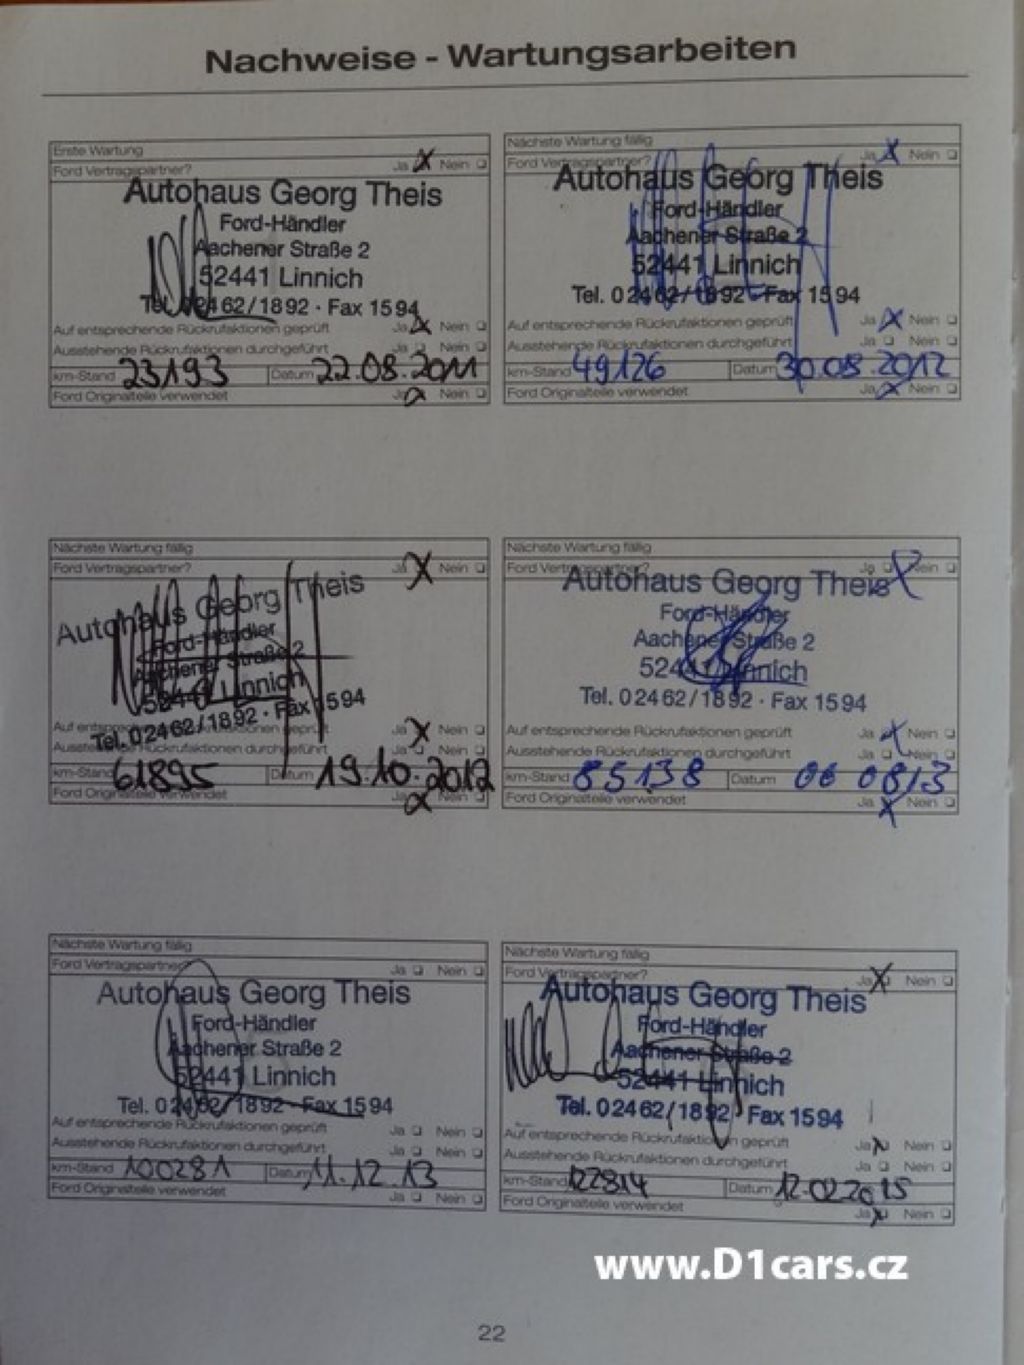 Nachweise - Wartungsarbeiten
Erste Wartung
Ford Vertragspartner? Ja X Nein ❑
Autohaus Georg Theis
Ford-Händler
Aachener Straße 2
52441 Linnich
Tel. 02462/1892 · Fax 1594
Auf entsprechende Rückrufaktionen geprüft Ja X Nein ❑
Ausstehende Rückrufaktionen durchgeführt Ja ❑ Nein ❑
km-Stand 23193 Datum 22.08.2011
Ford Originalteile verwendet Ja X Nein ❑
Nächste Wartung fällig
Ford Vertragspartner? Ja X Nein ❑
Autohaus Georg Theis
Ford-Händler
Aachener Straße 2
52441 Linnich
Tel. 02462/1892 - Fax 1594
Auf entsprechende Rückrufaktionen geprüft Ja X Nein ❑
Ausstehende Rückrufaktionen durchgeführt Ja ❑ Nein ❑
km-Stand 49126 Datum 30.08.2012
Ford Originalteile verwendet Ja X Nein ❑
Nächste Wartung fällig
Ford Vertragspartner? Ja X Nein ❑
Autohaus Georg Theis
Ford-Händler
Aachener Straße 2
52441 Linnich
Tel. 02462/1892 · Fax 1594
Auf entsprechende Rückrufaktionen geprüft Ja X Nein ❑
Ausstehende Rückrufaktionen durchgeführt Ja ❑ Nein ❑
km-Stand 61895 Datum 19.10.2012
Ford Originalteile verwendet Ja X Nein ❑
Nächste Wartung fällig
Ford Vertragspartner? Ja ❑ X Nein
Autohaus Georg Theis
Ford-Händler
Aachener Straße 2
52441 Linnich
Tel. 02462/1892 · Fax 1594
Auf entsprechende Rückrufaktionen geprüft Ja X Nein ❑
Ausstehende Rückrufaktionen durchgeführt Ja ❑ Nein ❑
km-Stand 85138 Datum 06 08 13
Ford Originalteile verwendet Ja X Nein ❑
Nächste Wartung fällig
Ford Vertragspartner? Ja ❑ Nein ❑
Autohaus Georg Theis
Ford-Händler
Aachener Straße 2
52441 Linnich
Tel. 02462/1892 - Fax 1594
Auf entsprechende Rückrufaktionen geprüft Ja ❑ Nein ❑
Ausstehende Rückrufaktionen durchgeführt Ja ❑ Nein ❑
km-Stand 100281 Datum 11.12.13
Ford Originalteile verwendet Ja ❑ Nein ❑
Nächste Wartung fällig
Ford Vertragspartner? Ja X Nein ❑
Autohaus Georg Theis
Ford-Händler
Aachener Straße 2
52441 Linnich
Tel. 02462/1892 · Fax 1594
Auf entsprechende Rückrufaktionen geprüft Ja X Nein ❑
Ausstehende Rückrufaktionen durchgeführt Ja ❑ Nein ❑
km-Stand 122814 Datum 12.02.2015
Ford Originalteile verwendet Ja X Nein ❑
www.D1cars.cz
22